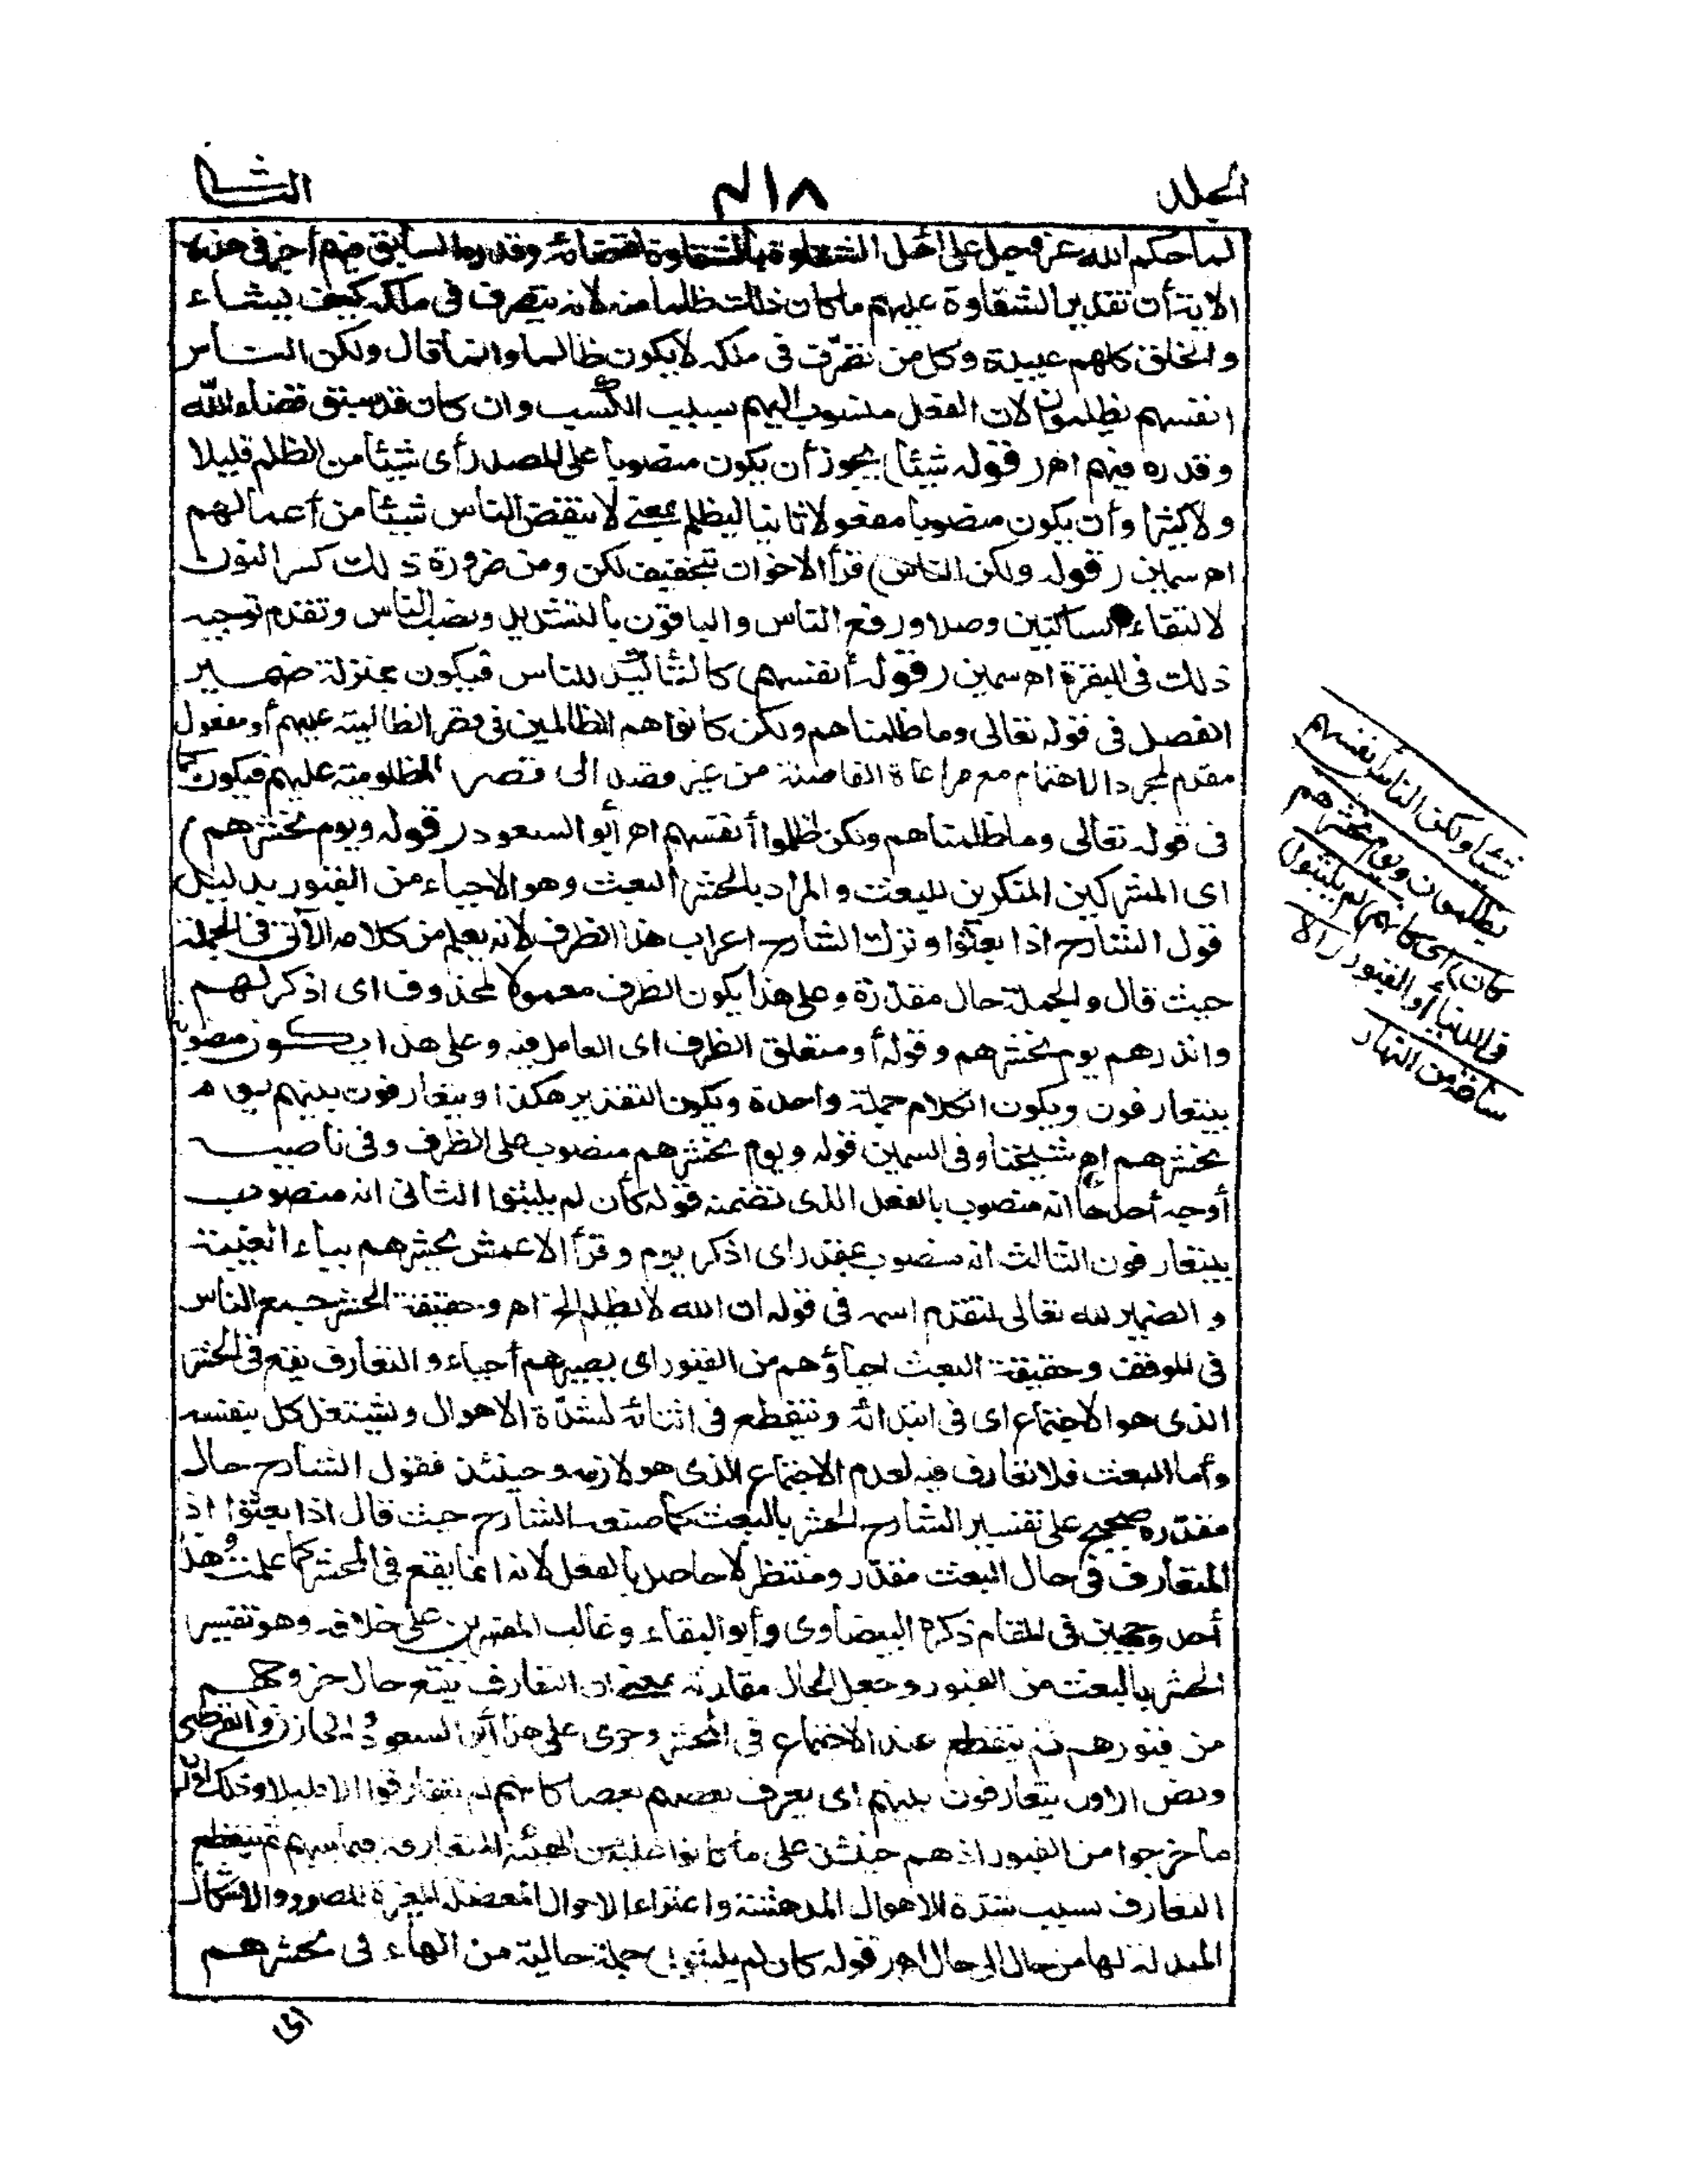 المجلد ٤١٨ الثانى
لما حكم الله عز وجل على أهل الشقاوة بالشقاوة لقضائه وقدره السابق فيهم أخبر فى هذه
الاية أن تقدير الشقاوة عليهم ما كان ذلك ظلما منه لانه يتصرف فى ملكه كيف يشاء
والخلق كلهم عبيده وكل من تصرف فى ملكه لا يكون ظالما وانما قال ولكن الناس
انفسهم يظلمون لان الفعل منسوب اليهم بسبب الكسب وان كان قد سبق قضاء الله
وقدره فيهم اهـ (قوله شيئا) يجوز أن يكون منصوبا على المصدر أى شيئا من الظلم قليلا
ولا كثيرا وأن يكون منصوبا مفعولا ثانيا ليظلم بمعنى لا ينقص الناس شيئا من أعمالهم
اهـ سمين (قوله ولكن الناس) قرأ الاخوان بتخفيف لكن ومن ضرورة ذلك كسر النون
لالتقاء الساكنين وصلا ورفع الناس والباقون بالتشديد ونصب الناس وتقدم توجيه
ذلك فى البقرة اهـ سمين (قوله أنفسهم) كالتأكيد للناس فيكون بمنزلة ضمير
الفصل فى قوله تعالى وما ظلمناهم ولكن كانوا هم الظالمين فى قصر الظالمية عليهم أو مفعول
مقدم لمجرد الاهتمام مع مراعاة الفاصلة من غير قصد الى قصر المظلومية عليهم فيكون كما
فى قوله تعالى وما ظلمناهم ولكن ظلموا أنفسهم اهـ أبو السعود (قوله ويوم نحشرهم)
اى المشركين المنكرين للبعث والمراد بالحشر البعث وهو الاحياء من القبور بدليل
قول الشارح اذا بعثوا وترك الشارح اعراب هذا الظرف لانه يعلم من كلامه الآتى فى الجملة
حيث قال والجملة حال مقدرة وعلى هذا يكون الظرف معمولا لمحذوف اى اذكر لهم
وانذرهم يوم نحشرهم وقوله أو متعلق الظرف اى العامل فيه وعلى هذا يكون منصوبا
بيتعارفون ويكون الكلام جملة واحدة ويكون التقدير هكذا ويتعارفون بينهم يوم
نحشرهم اهـ شيخنا وفى السمين قوله ويوم نحشرهم منصوب على الظرف وفى ناصبه
أوجه أحدها انه منصوب بالفعل الذى تضمنه قوله كأن لم يلبثوا الثانى انه منصوب
بيتعارفون الثالث انه منصوب بمقدر اى اذكر يوم وقرأ الاعمش يحشرهم بياء الغيبة
والضمير لله تعالى لتقدم اسمه فى قوله ان الله لا يظلم الخ اهـ وحقيقة الحشر جمع الناس
فى الموقف وحقيقة البعث احياؤهم من القبور اى يصيرهم أحياء والتعارف يقع فى الحشر
الذى هو الاجتماع اى فى ابتدائه وينقطع فى اثنائه لشدة الاهوال ويشتغل كل بنفسه
وأما البعث فلا تعارف فيه لعدم الاجتماع الذى هو لازمه وحينئذ فقول الشارح حال
مقدره صحيح على تفسير الشارح الحشر بالبعث كما صنعه الشارح حيث قال اذا بعثوا اذ
المتعارف فى حال البعث مقدر ومنتظر لا حاصل بالفعل لانه انما يقع فى المحشر كما علمت وهذا
أحد وجهين فى المقام ذكره البيضاوى وأبو البقاء وغالب المفسرين على خلافه وهو تفسير
الحشر بالبعث من القبور وجعل الحال مقارنة بمعنى ان التعارف يقع حال خروجهم
من قبورهم ثم ينقطع عند الاجتماع فى المحشر وجرى على هذا أبو السعود والخازن والقرطبى
ونص الاول يتعارفون بينهم اى يعرف بعضهم بعضا كانهم لم يتعارفوا الا قليلا وذلك أول
ما خرجوا من القبور اذ هم حينئذ على ما كانوا عليه من الهيئة المتعارفة فيما بينهم ثم ينقطع
التعارف بسبب شدة الاهوال المدهشة واعتراء الاحوال المعضلة المغيرة للصور والاشكال
المبدلة لها من حال الى حال اهـ (قوله كان لم يلبثوا) جملة حالية من الهاء فى نحشرهم
اى
شيئا ولكن الناس أنفسهم
يظلمون ويوم نحشرهم
كان) اى كانهم (لم يلبثوا)
فى الدنيا أو القبور (الا
ساعة من النهار